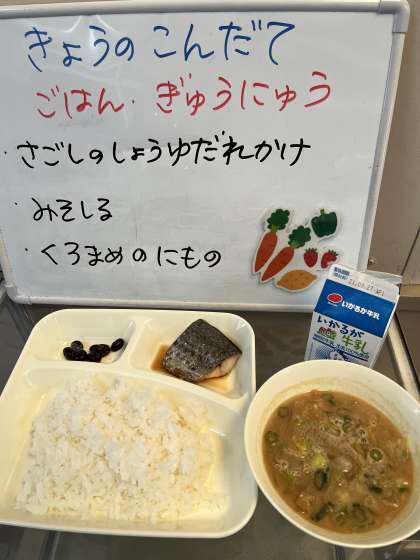 きょうのこんだて
ごはん・ぎゅうにゅう
・さごしのしょうゆだれかけ
・みそしる
・くろまめのにもの
いかるが牛乳
いかるが
牛乳